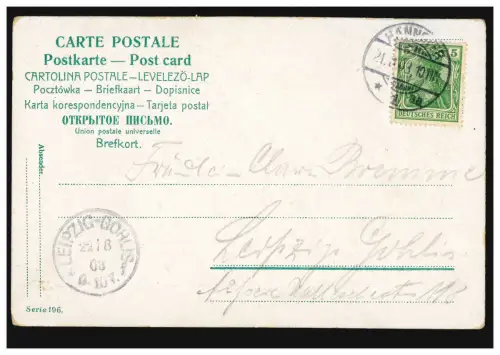 CARTE POSTALE
Postkarte — Post card
CARTOLINA POSTALE – LEVELEZŐ-LAP
Pocztówka – Briefkaart – Dopisnice
Karta korespondencyjna – Tarjeta postal
ОТКРЫТОЕ ПИСЬМО.
Union postale universelle
Brefkort.
Absender:
5
DEUTSCHES REICH
Clara
Leipzig Gohlis
LEIPZIG-GOHLIS
22 | 8
03
Serie 196.